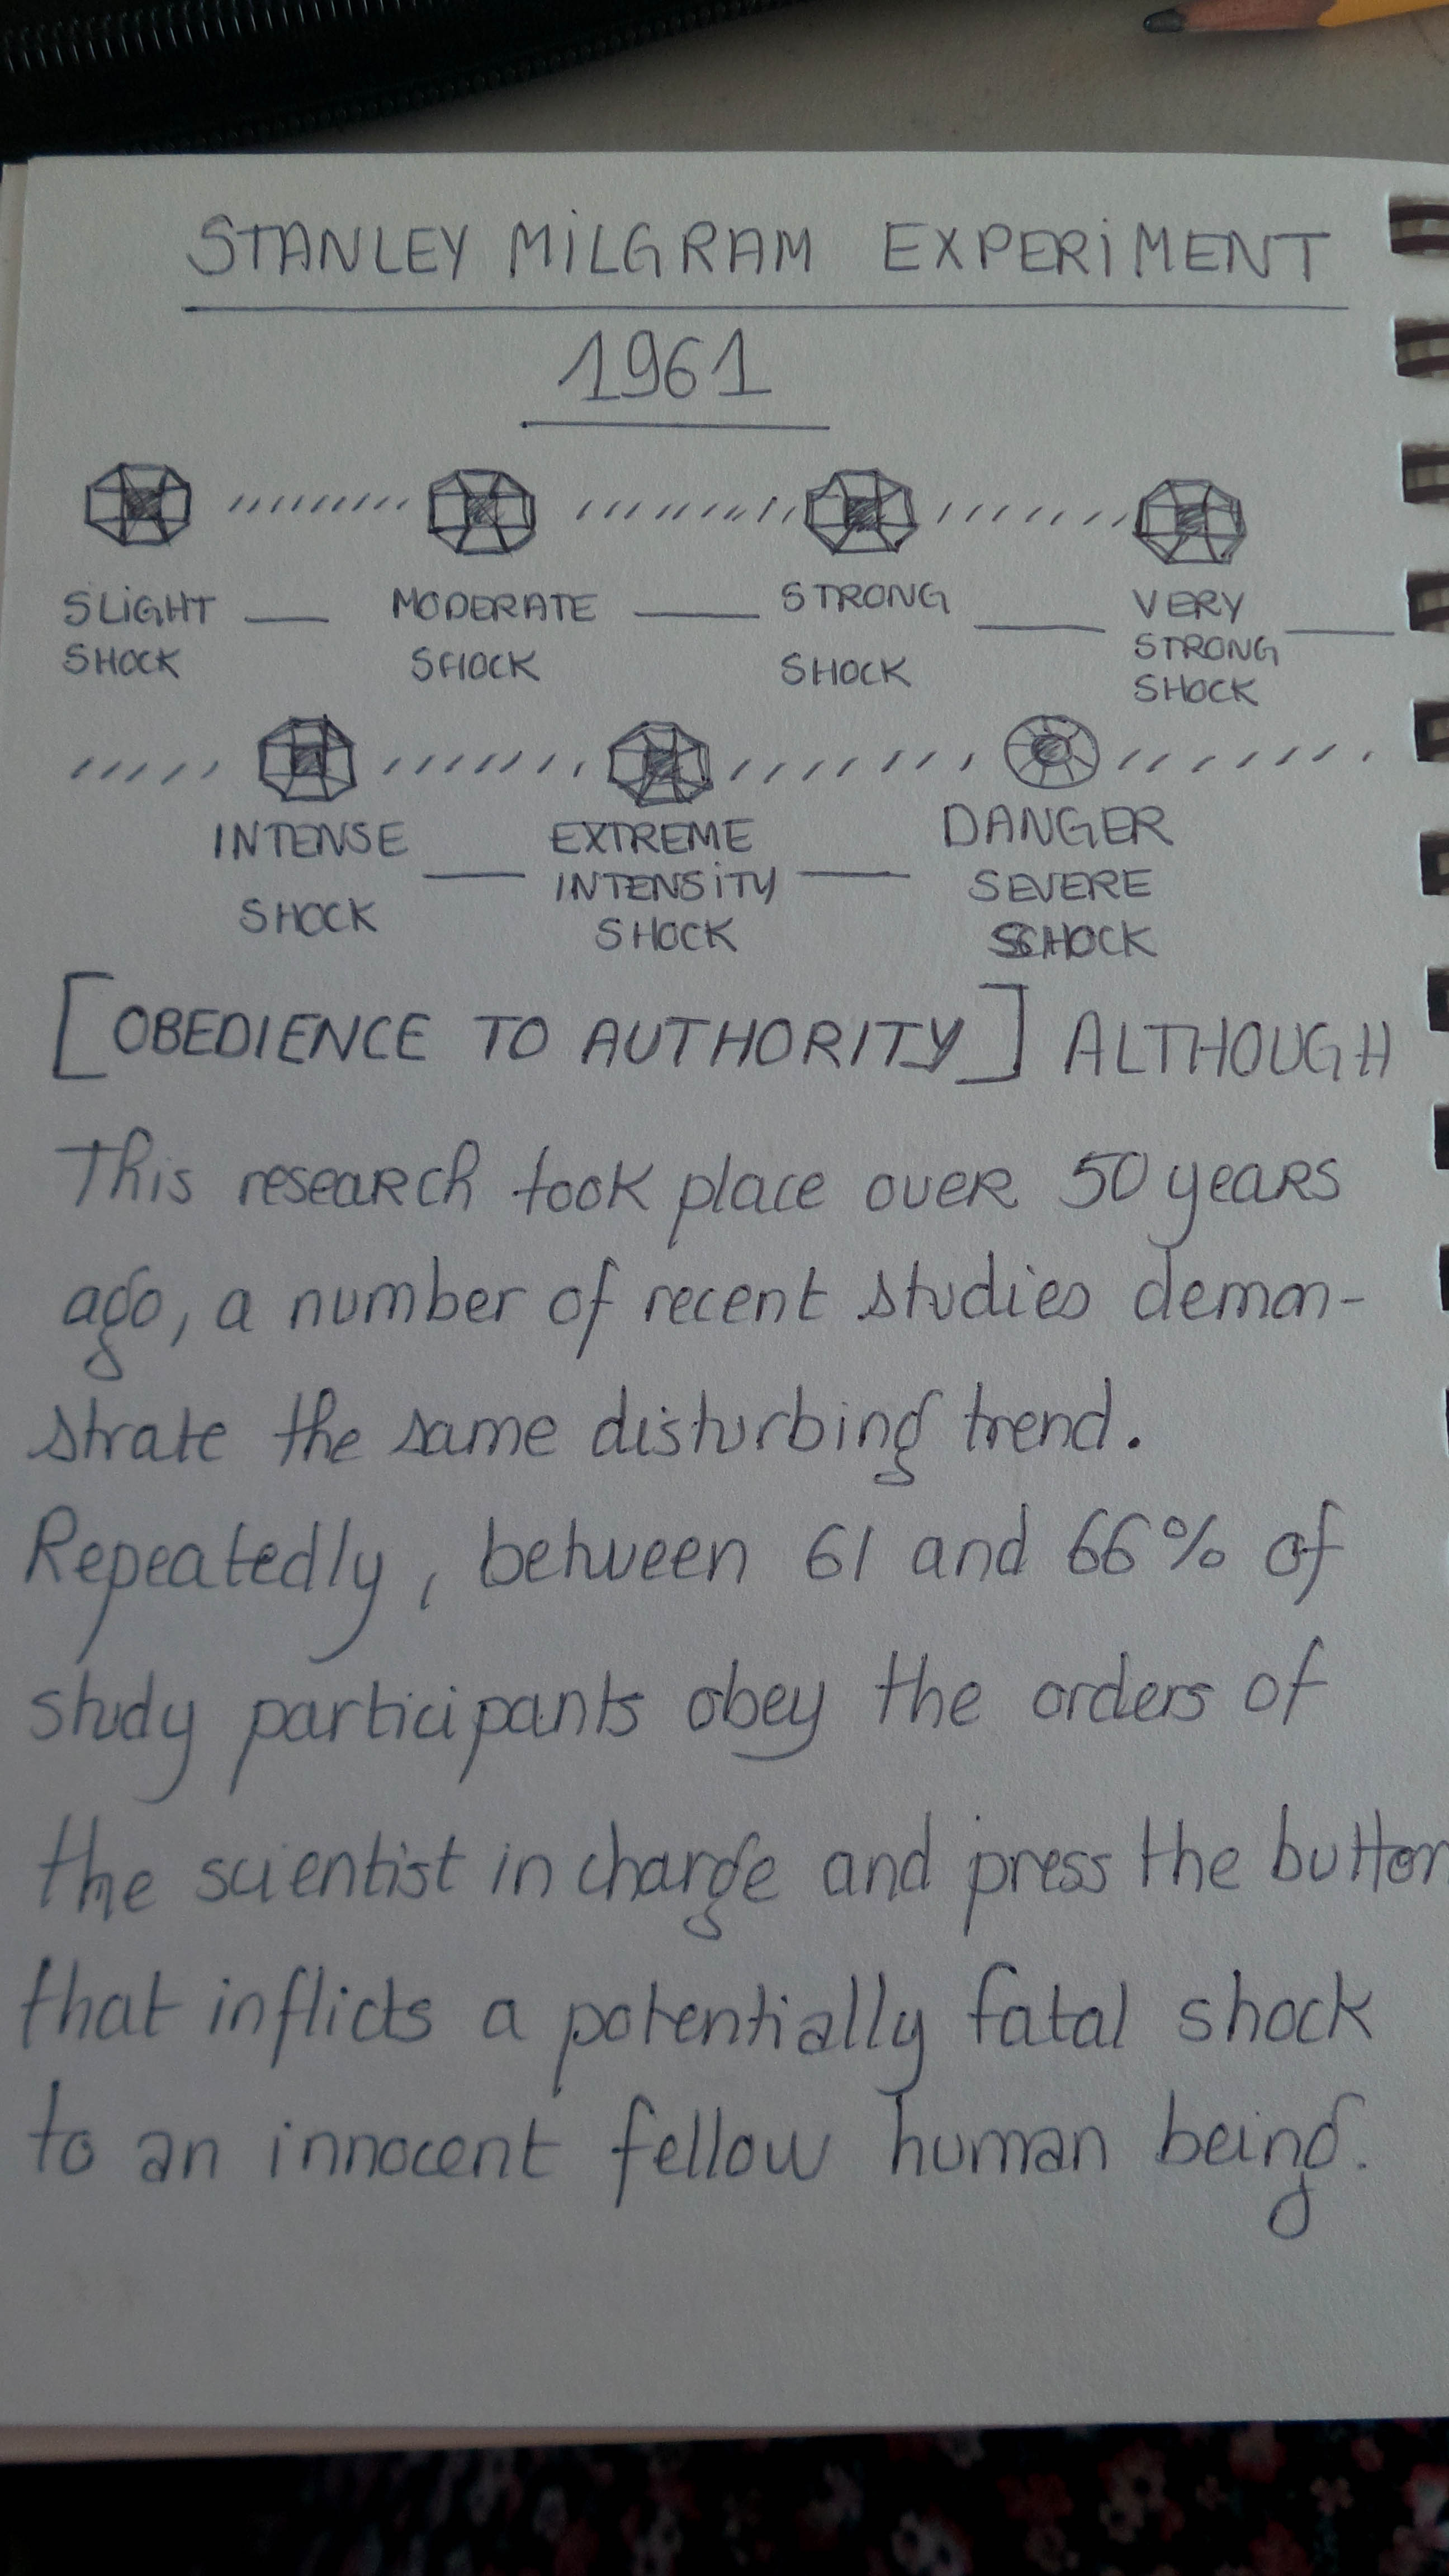 STANLEY MiLGRAM EXPERiMENT
1961
SLiGHT SHOCK — MODERATE SHOCK — STRONG SHOCK — VERY STRONG SHOCK —
INTENSE SHOCK — EXTREME INTENSiTY SHOCK — DANGER SEVERE SCHOCK
[OBEDIENCE TO AUTHORITY] ALTHOUGH
This research took place over 50 years
ago, a number of recent studies demon-
strate the same disturbing trend.
Repeatedly, between 61 and 66% of
study participants obey the orders of
the scientist in charge and press the button
that inflicts a potentially fatal shock
to an innocent fellow human being.